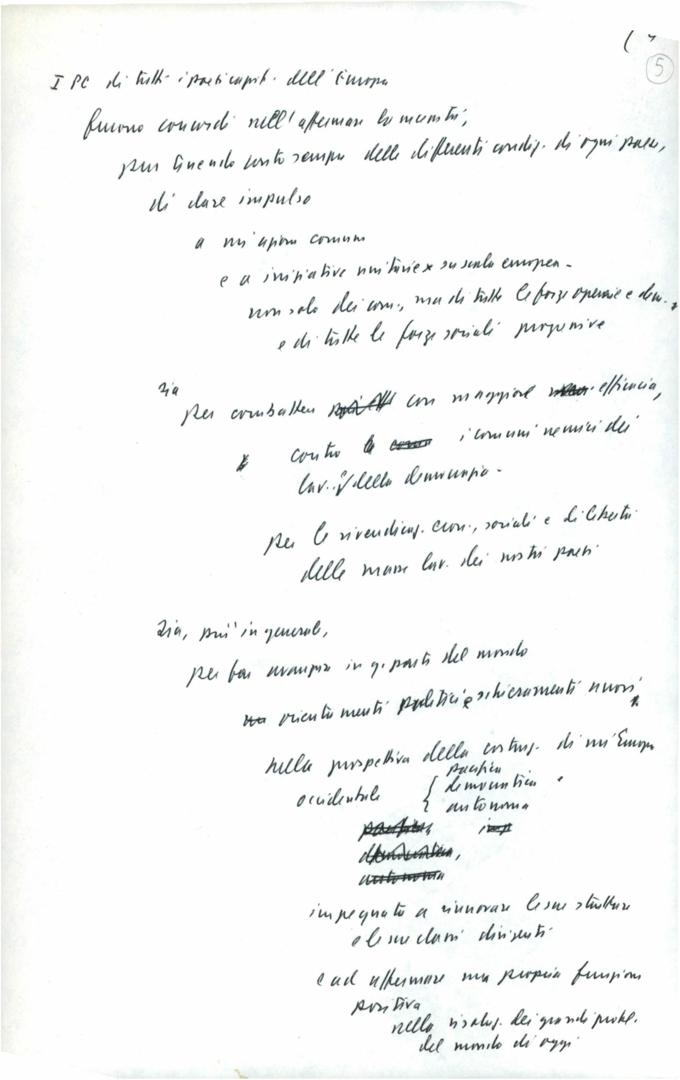 5
I PC di tutti i paesi capit. dell'Europa
furono concordi nell'affermare la necessità,
pur tenendo conto sempre delle differenti condiz. di ogni paese,
di dare impulso
a un'azione comune
e a iniziative unitarie su scala europea -
non solo dei com., ma di tutte le forze operaie e dem.
e di tutte le forze sociali progressive
sia
per combattere con maggiore efficacia,
contro i comuni nemici dei
lav. e della democrazia -
per le rivendicaz. econ., sociali e di libertà
delle masse lav. dei nostri paesi
sia, più in generale,
per far avanzare in q. parte del mondo
orientamenti politici e schieramenti nuovi,
nella prospettiva della costruz. di un'Europa
occidentale { pacifica
democratica
autonoma
impegnata a rinnovare le sue strutture
e le sue classi dirigenti
e ad affermare una propria funzione
positiva
nella risoluz. dei grandi probl.
del mondo di oggi